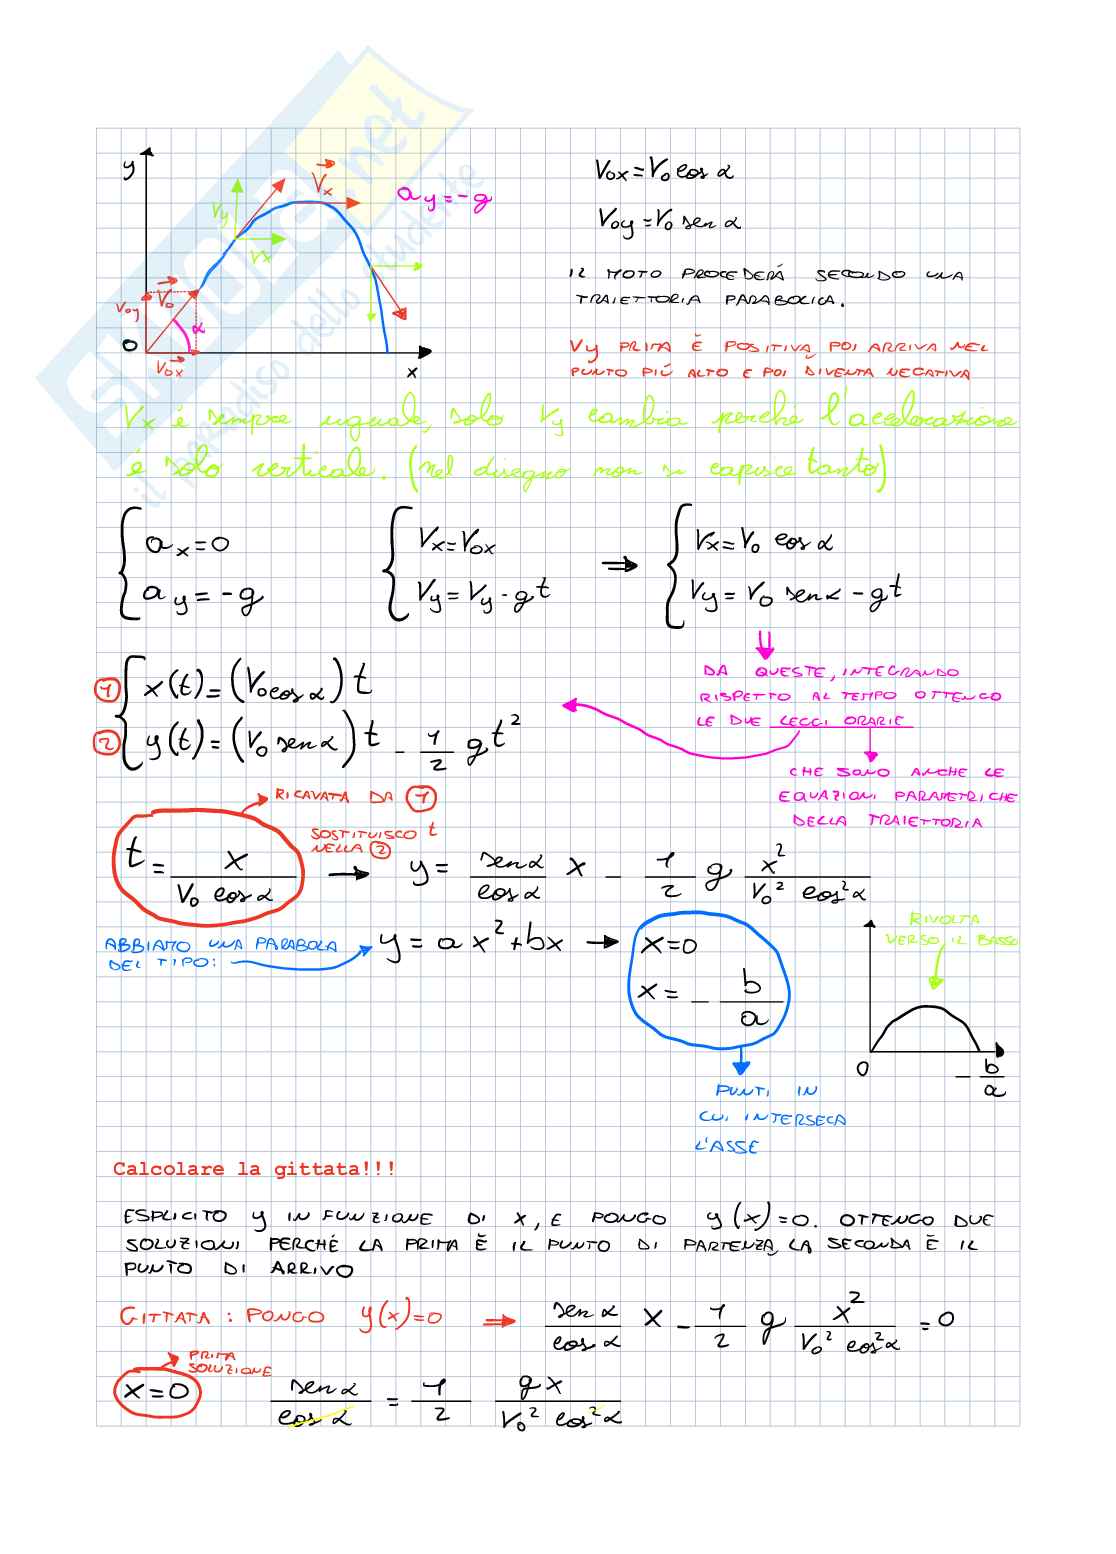 y
V⃗x
ay=-g
Vy
Vx
V⃗0
V0y
α
0
V⃗0x
x
V0x=V0 cos α
V0y=V0 sen α
IL MOTO PROCEDERÀ SECONDO UNA
TRAIETTORIA PARABOLICA.
Vy PRIMA È POSITIVA, POI ARRIVA NEL
PUNTO PIÚ ALTO E POI DIVENTA NEGATIVA
Vx é sempre uguale, solo Vy cambia perché l'accelerazione
é solo verticale. (nel disegno non si capisce tanto)
{ ax=0
ay=-g
{ Vx=V0x
Vy=Vy-gt
⇒ { Vx=V0 cos α
Vy=V0 sen α - gt
⇓
DA QUESTE, INTEGRANDO
RISPETTO AL TEMPO OTTENGO
LE DUE LEGGI ORARIE
CHE SONO ANCHE LE
EQUAZIONI PARAMETRICHE
DELLA TRAIETTORIA
① x(t)=(V0 cos α) t
② y(t)=(V0 sen α) t - 1/2 gt²
RICAVATA DA ①
t= x/(V0 cos α)
SOSTITUISCO t
NELLA ②
→ y= (sen α/cos α) x - 1/2 g x²/(V0² cos²α)
ABBIAMO UNA PARABOLA
DEL TIPO:
y=ax²+bx → x=0
x=- b/a
PUNTI IN
CUI INTERSECA
L'ASSE
RIVOLTA
VERSO IL BASSO
0
- b/a
Calcolare la gittata!!!
ESPLICITO y IN FUNZIONE DI x, E PONGO y(x)=0. OTTENGO DUE
SOLUZIONI PERCHÉ LA PRIMA È IL PUNTO DI PARTENZA, LA SECONDA È IL
PUNTO DI ARRIVO
GITTATA: PONGO y(x)=0 ⇒ (sen α/cos α) x - 1/2 g x²/(V0² cos²α) =0
PRIMA
SOLUZIONE
x=0
sen α/cos α = 1/2 gx/(V0² cos²α)